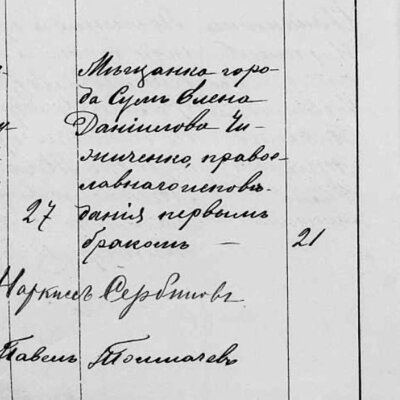 Мѣщанка горо-
да Сумъ Елена
Даніилова Чи-
жиченко, право-
славнаго исповѣ-
27 данія первымъ
бракомъ — 21
Наркисъ Сербиновъ
Павелъ Толмачевъ